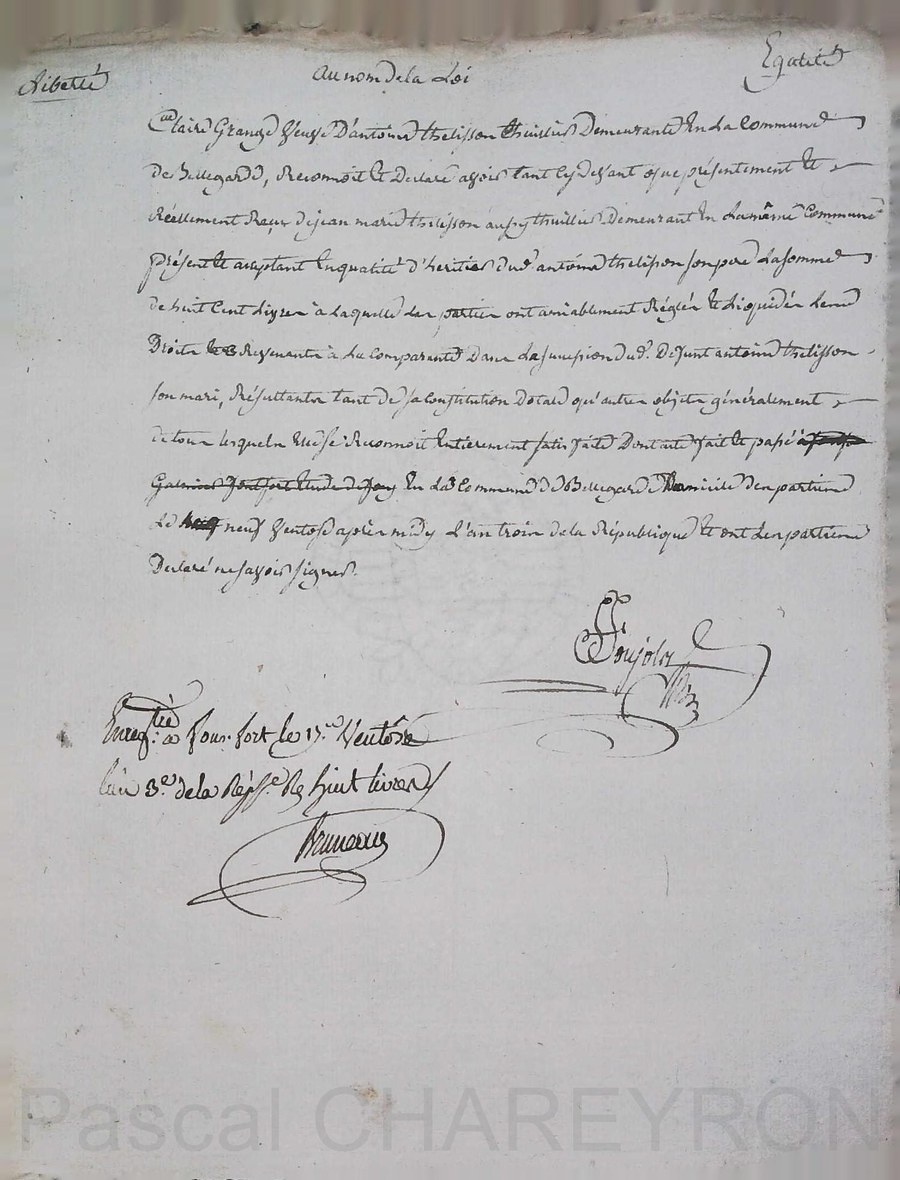 Liberté Au nom de la Loi Egalité
Claire Grange Veuve D'antoine thelisson thuillier Demeurante En La Commune
de Bellegarde, Reconnoit Et Declare avoir tant Cy devant que présentement Et
Réellement Reçu de jean marie thelisson aussy thuillier Demeurant En La même Commune
présent Et aceptant En qualité d'heritier dud. antoine thelisson son pere La somme
de huit Cent Livres à Laquelle Les parties ont amiablement Réglés Et Liquidés Les
Droits Revenants à La Comparante Dans La sucession dud. Defunt antoine thelisson
son mari, Résultants tant de sa Constitution Dotale qu'autres objets généralement
de tous lesquels Elle se Reconnoit Entierement satisfaite Dont acte fait Et passé à
En La Commune de Bellegarde Domicile des parties
Le neuf Ventose après midy L'an trois de la République Et ont Les parties
Declaré ne savoir signer.
Pujolas
Enregtré a fontfort le 17 Ventôse
l'an 3e de la Repe. Rs huit livres
Bruneaux
Pascal CHAREYRON